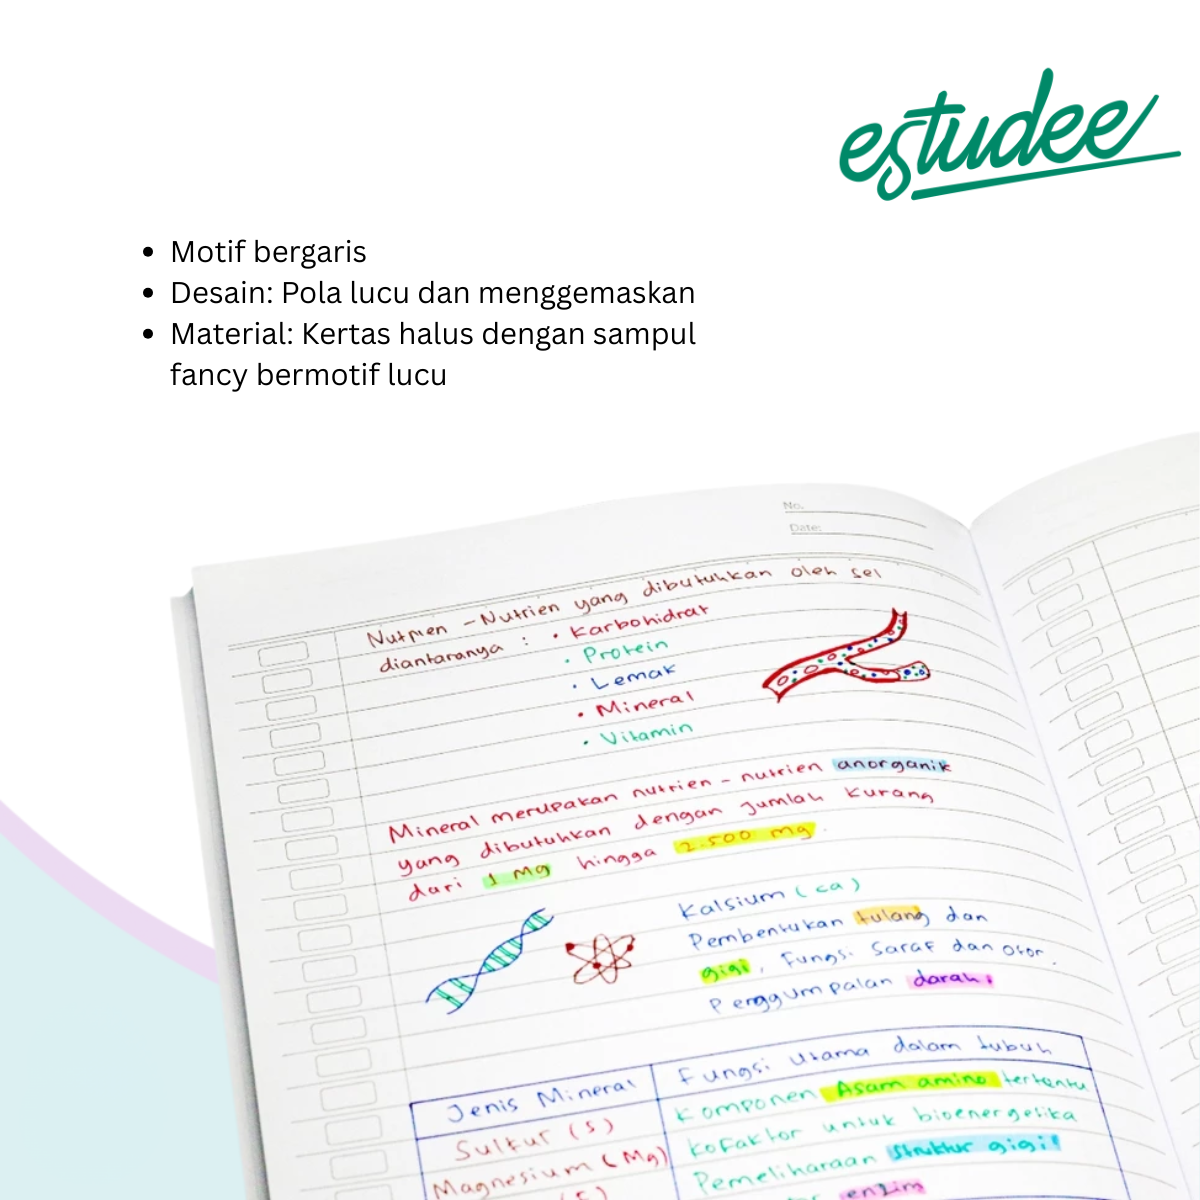 estudee
Motif bergaris
Desain: Pola lucu dan menggemaskan
Material: Kertas halus dengan sampul
fancy bermotif lucu
No.
Date:
Nutrien - Nutrien yang dibutuhkan oleh sel
diantaranya : • Karbohidrat
• Protein
• Lemak
• Mineral
• Vitamin
Mineral merupakan nutrien - nutrien anorganik
yang dibutuhkan dengan jumlah kurang
dari 1 Mg hingga 2.500 mg.
Kalsium (ca)
Pembentukan tulang dan
gigi, Fungsi saraf dan otor.
Penggumpalan darah
Jenis Mineral
Fungsi Utama dalam tubuh
Sulfur (S)
Komponen Asam amino tertentu
Magnesium (Mg)
Kofaktor untuk bioenergetika
Pemeliharaan struktur gigi
enzim